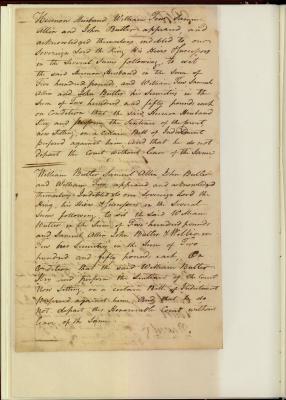 Hermon Husband William Few Samuel
Allen and John Butler appeared and
acknowledged themselves indebted to our
Sovereign Lord the King His Heirs & Successors
in the Several Sums following, to wit
the said Hermon Husband in the Sum of
Five hundred pounds, and William Few Samuel
Allen and John Butler his Securities in the
Sum of Two hundred and fifty pounds each
on Condition that the said Hermon Husband
stay and perform the Sentence of the Court
now Sitting, on a certain Bill of Indictment
prefered against him, And that he do not
depart the Court without leave of the Same
William Butler Samuel Allen John Butler
and William Few appeared and acknowledged
themselves Indebted to our Sovereign Lord the
King, his Heirs & Successors in the Several
Sums following, to wit the said William
Butler in the Sum of Five hundred pounds
and Samuel Allen John Butler & William
Few his Securities in the Sum of Two
hundred and fifty pounds each, On
Condition that the said William Butler
Stay and perform the Sentence of the Court
Now Sitting on a certain Bill of Indictment
Prefered against him, And that he do
not depart this Honourable Court without
leave of the Same